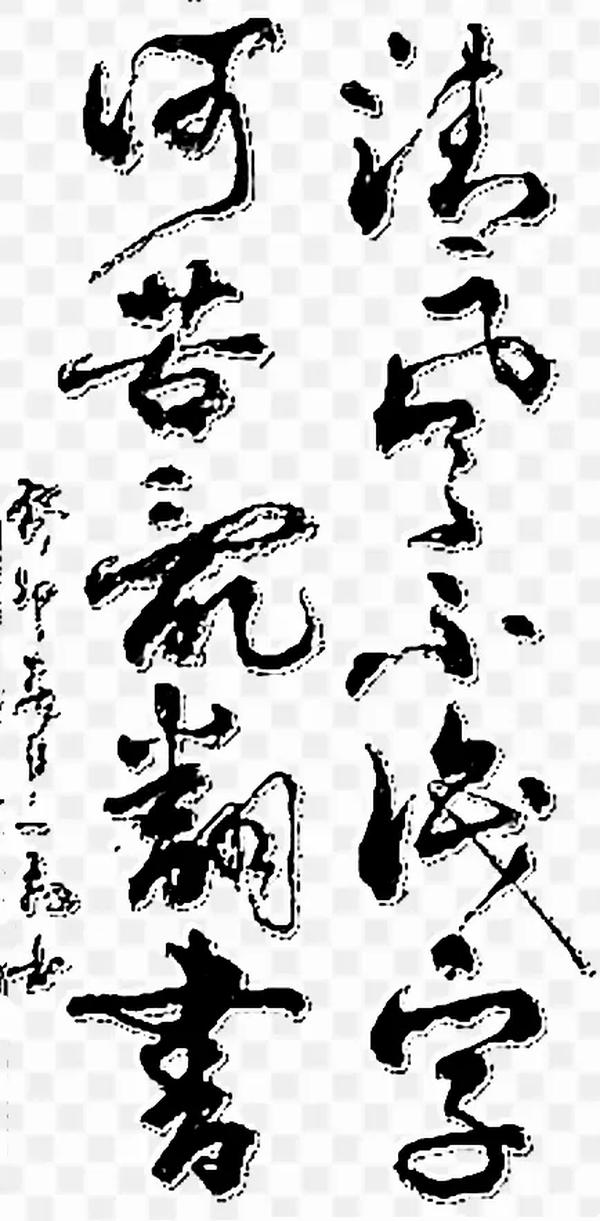 清風不識字
何苦亂翻書